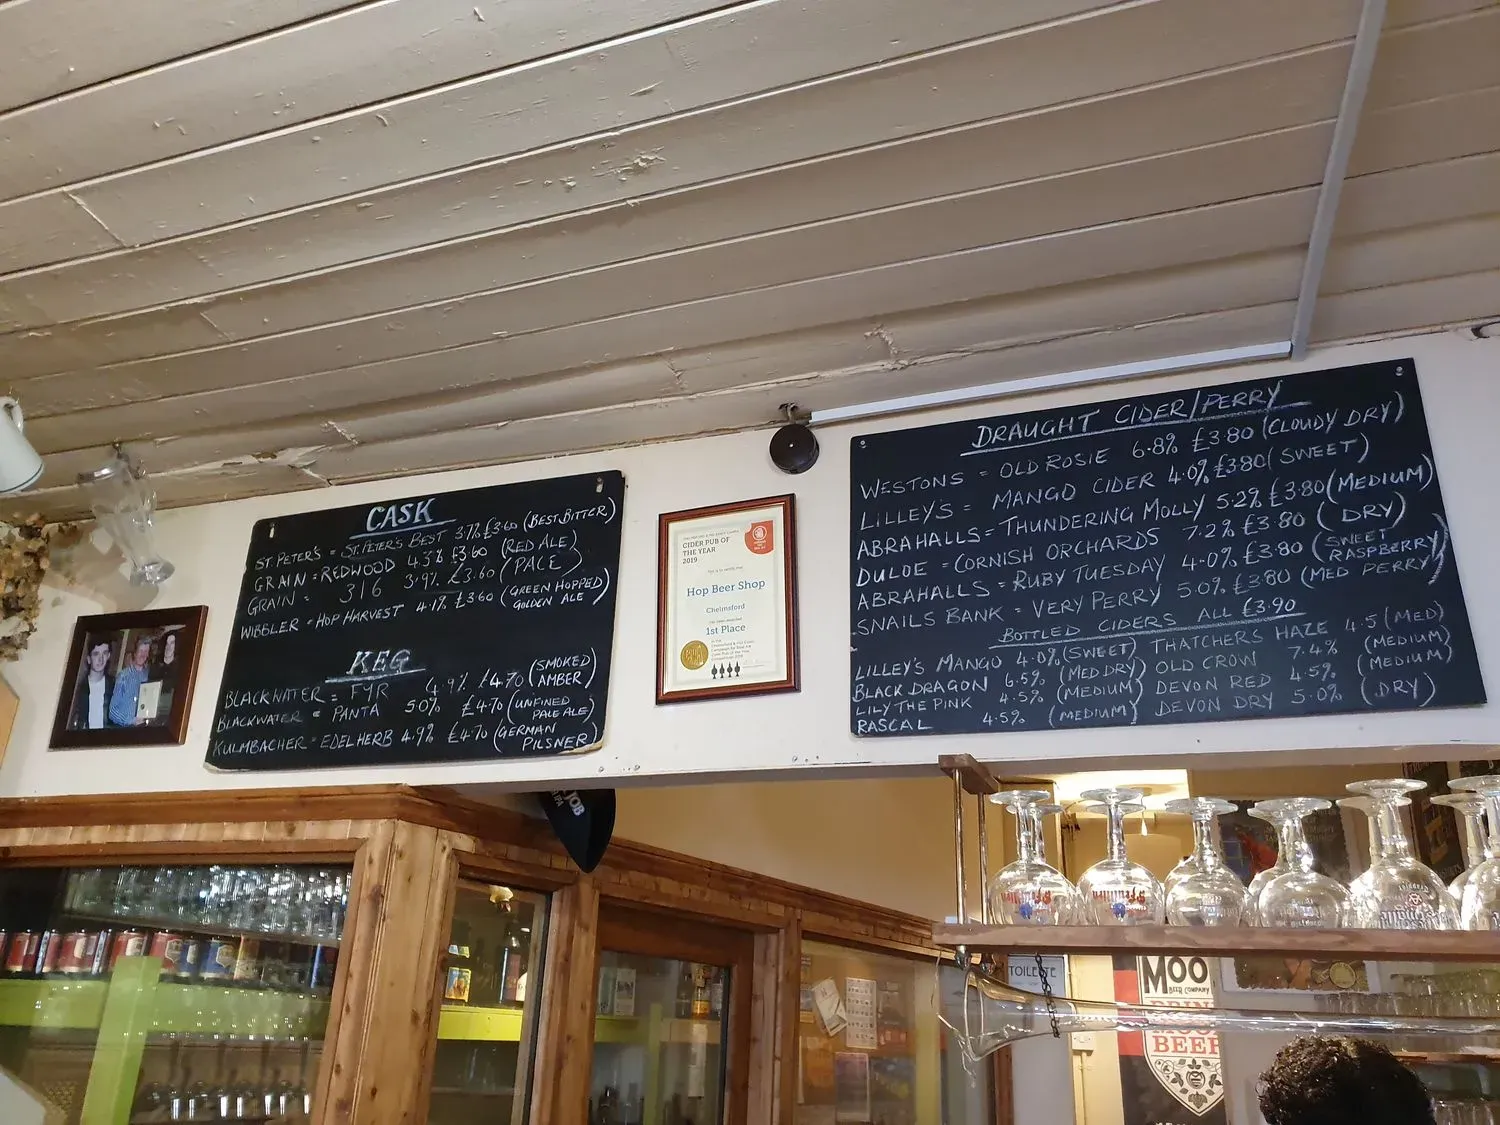 CASK
ST. PETER'S = ST. PETER'S BEST 3.7% £3.60 (BEST BITTER)
GRAIN = REDWOOD 4.3% £3.60 (RED ALE)
GRAIN = 316 3.9% £3.60 (PALE)
WIBBLER = HOP HARVEST 4.1% £3.60 (GREEN HOPPED
GOLDEN ALE)
KEG
BLACKWATER = FYR 4.9% £4.70 (SMOKED
AMBER)
BLACKWATER = PANTA 5.0% £4.70 (UNFINED
PALE ALE)
KULMBACHER = EDELHERB 4.9% £4.70 (GERMAN
PILSNER)
CIDER PUB OF
THE YEAR
2019
Hop Beer Shop
Chelmsford
1st Place
DRAUGHT CIDER/PERRY
WESTONS = OLD ROSIE 6.8% £3.80 (CLOUDY DRY)
LILLEY'S = MANGO CIDER 4.0% £3.80 (SWEET)
ABRAHALLS = THUNDERING MOLLY 5.2% £3.80 (MEDIUM)
DULOE = CORNISH ORCHARDS 7.2% £3.80 (DRY)
ABRAHALLS = RUBY TUESDAY 4.0% £3.80 (SWEET
RASPBERRY)
SNAILS BANK = VERY PERRY 5.0% £3.80 (MED PERRY)
BOTTLED CIDERS ALL £3.90
LILLEY'S MANGO 4.0% (SWEET) THATCHERS HAZE 4.5 (MED)
BLACK DRAGON 6.5% (MED DRY) OLD CROW 7.4% (MEDIUM)
LILY THE PINK 4.5% (MEDIUM) DEVON RED 4.5% (MEDIUM)
RASCAL 4.5% (MEDIUM) DEVON DRY 5.0% (DRY)
JOB
TOILETTE
MOO
BEER COMPANY
DRIN
MOO
BEER